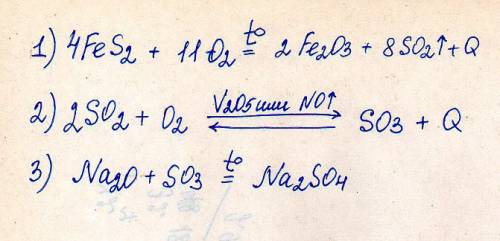 1) 4FeS2 + 11O2 t° = 2Fe2O3 + 8SO2↑ + Q
2) 2SO2 + O2 V2O5 или NO↑ ⇄ SO3 + Q
3) Na2O + SO3 t° = Na2SO4